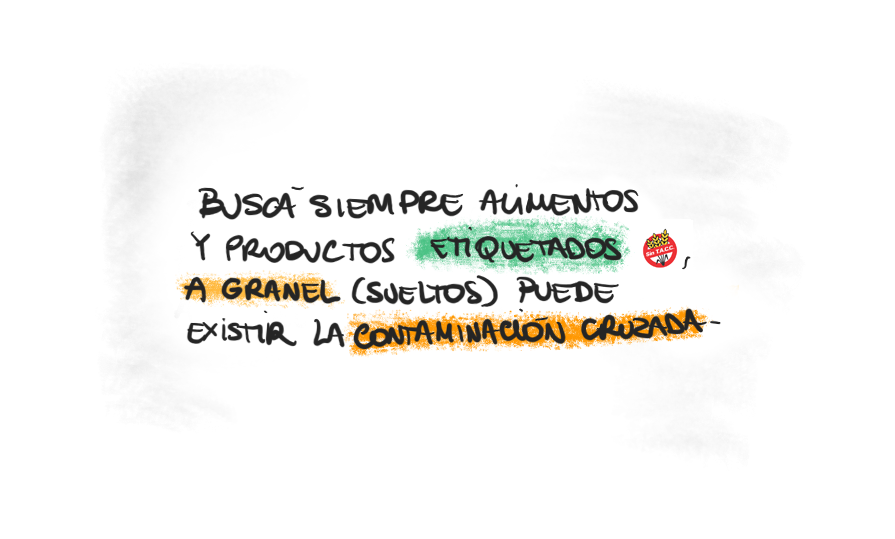 BUSCÁ SIEMPRE ALIMENTOS
Y PRODUCTOS ETIQUETADOS Sin T.A.C.C. ,
A GRANEL (SUELTOS) PUEDE
EXISTIR LA CONTAMINACIÓN CRUZADA-